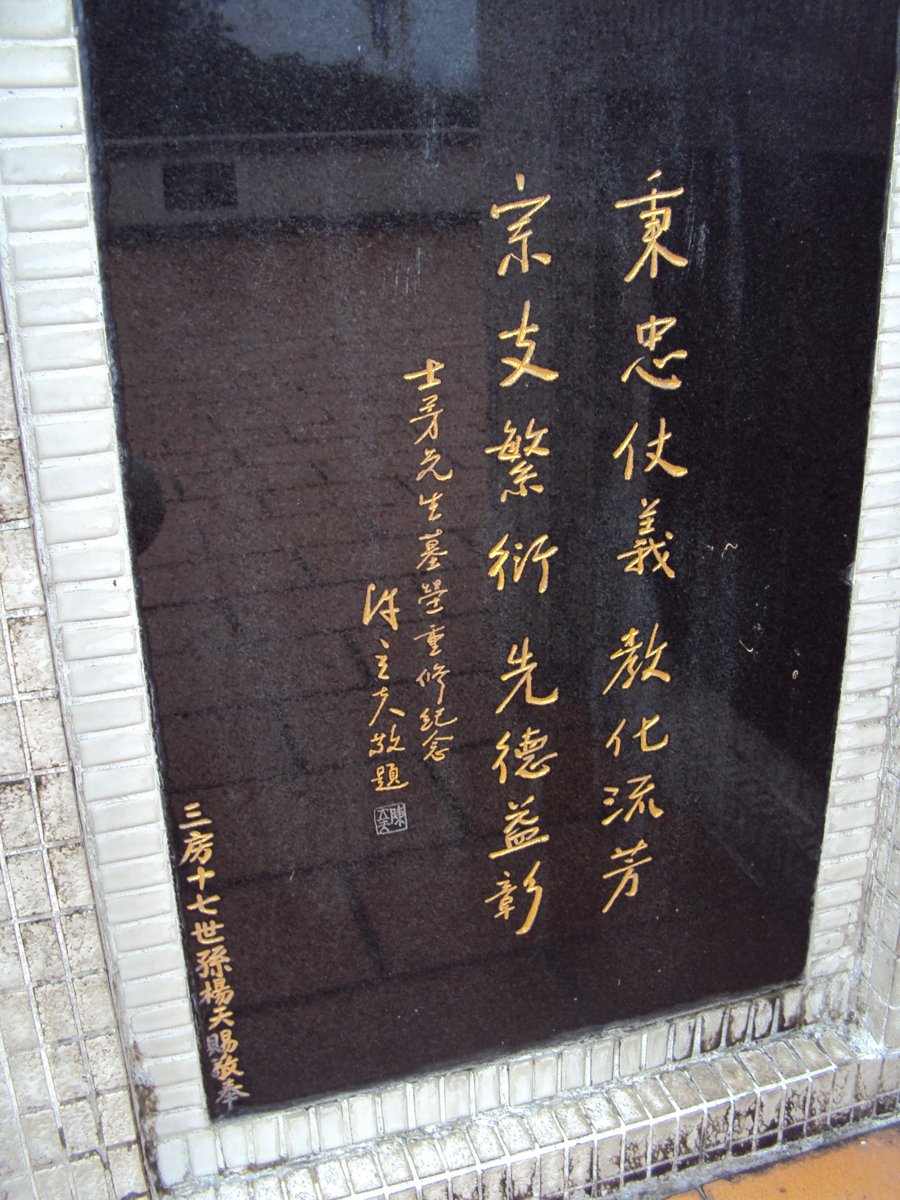 秉忠仗義教化流芳
宗支繁衍先德益彰
士芳先生墓塋重修紀念
陳立夫敬題
陳立夫
三房十七世孫楊天賜敬奉